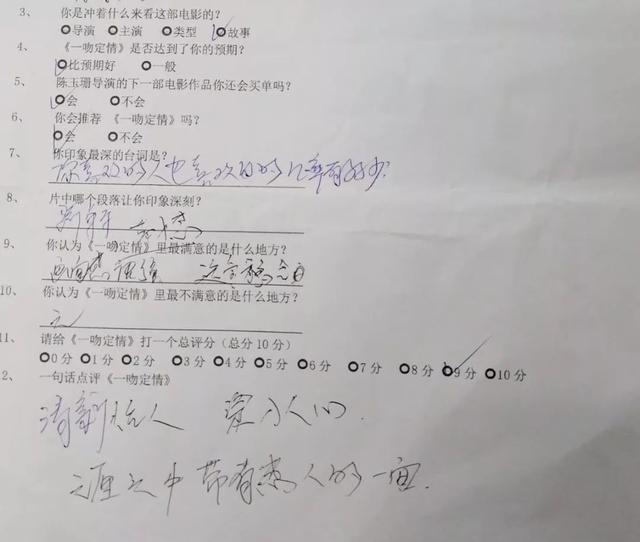 3、 你是冲着什么来看这部电影的？
导演 主演 类型 故事
4、 《一吻定情》是否达到了你的预期？
比预期好 一般
5、 陈玉珊导演的下一部电影作品你还会买单吗？
会 不会
6、 你会推荐 《一吻定情》吗？
会 不会
7、 你印象最深的台词是？
你喜欢的人也喜欢你的几率有多少？
8、 片中哪个段落让你印象深刻？
9、 你认为《一吻定情》里最满意的是什么地方？
10、 你认为《一吻定情》里最不满意的是什么地方？
无
11、 请给《一吻定情》打一个总评分（总分 10 分）
0 分 1 分 2 分 3 分 4 分 5 分 6 分 7 分 8 分 9 分 10 分
2、 一句话点评《一吻定情》
清新怡人
中带有 人的一面.